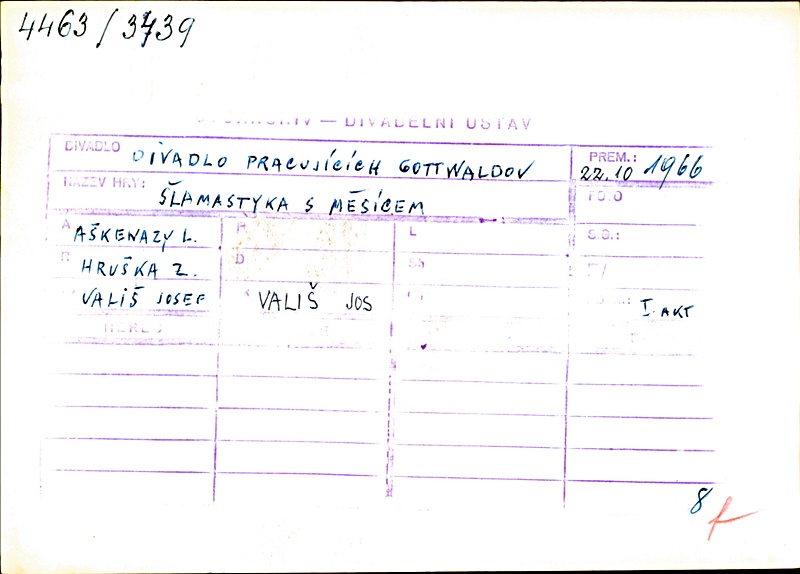 4463 / 3439
DIVADELNÍ ÚSTAV
DIVADLO DIVADLO PRACUJÍCÍCH GOTTWALDOV PREM.: 22.10 1966
NÁZEV HRY: ŠLAMASTYKA S MĚSÍCEM
A AŠKENAZY L. L S.O.:
R HRUŠKA Z. D Sh
VALIŠ JOSEF VALIŠ JOS I. AKT
8